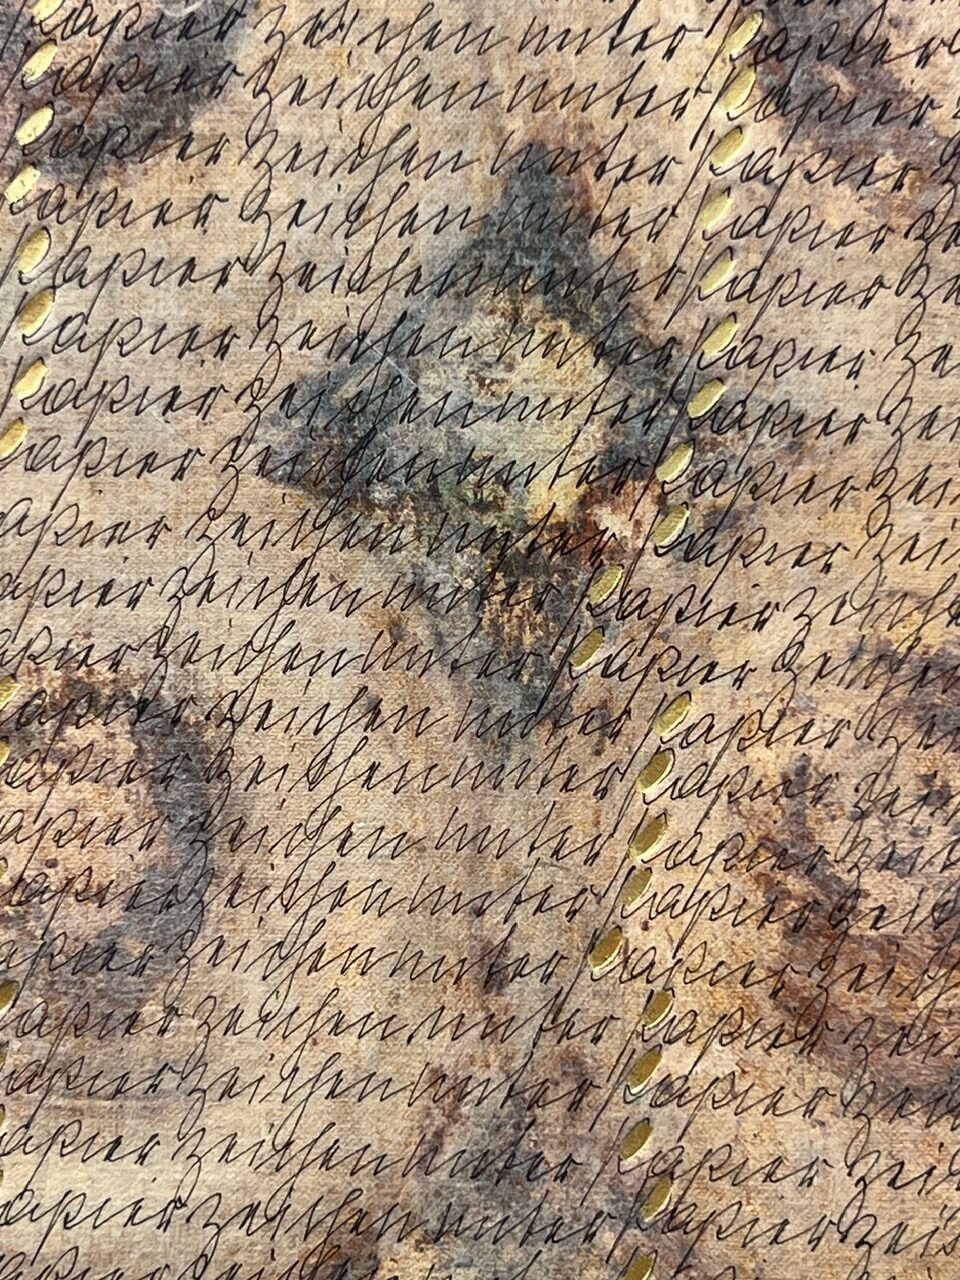 papier zeichen unter papier
papier zeichen unter papier
papier zeichen unter papier
papier zeichen unter papier
papier zeichen unter papier
papier zeichen unter papier
papier zeichen unter papier
papier zeichen unter papier
papier zeichen unter papier
papier zeichen unter papier
papier zeichen unter papier
papier zeichen unter papier
papier zeichen unter papier
papier zeichen unter papier
papier zeichen unter papier
papier zeichen unter papier
papier zeichen unter papier
papier zeichen unter papier
papier zeichen unter papier
papier zeichen unter papier